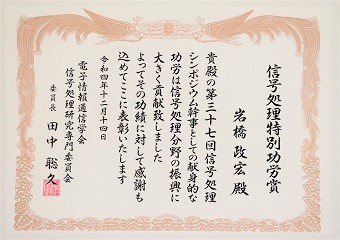 信号処理特別功労賞
岩橋 政宏 殿
貴殿の第三十七回信号処理
シンポジウム幹事としての献身的な
功労は信号処理分野の振興に
大きく貢献致しました
よってその功績に対して感謝も
込めてここに表彰いたします
令和四年十二月十四日
電子情報通信学会
信号処理研究専門委員会
委員長 田中 聡久